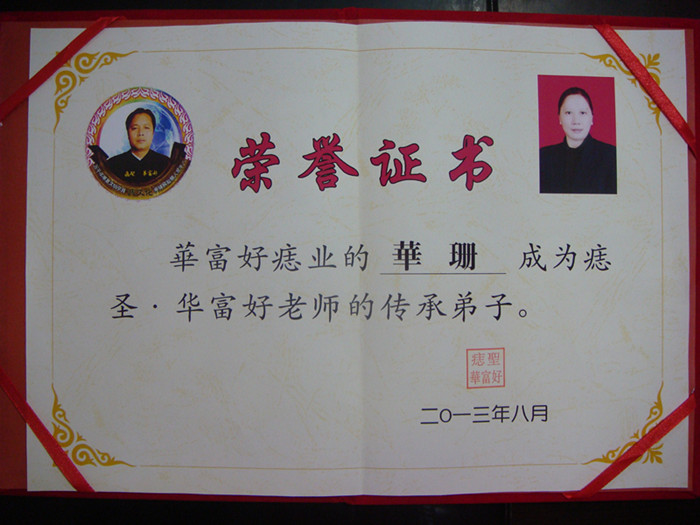 荣誉证书
華富好痣业的 華 珊 成为痣
圣·华富好老师的传承弟子。
痣聖
華富好
二〇一三年八月